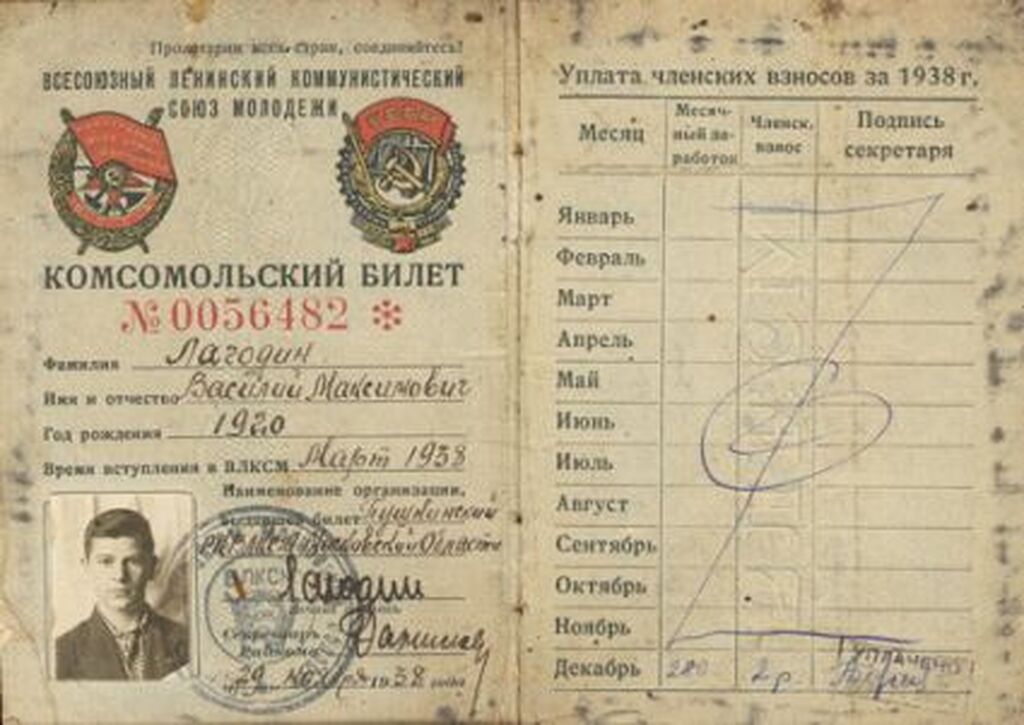 Пролетарии всех стран, соединяйтесь!
ВСЕСОЮЗНЫЙ ЛЕНИНСКИЙ КОММУНИСТИЧЕСКИЙ
СОЮЗ МОЛОДЕЖИ
КОМСОМОЛЬСКИЙ БИЛЕТ
№ 0056482 *
Фамилия Лагодин
Имя и отчество Василий Максимович
Год рождения 1920
Время вступления в ВЛКСМ Март 1938
Наименование организации,
выдавшей билет Пушкинский
РК ВЛКСМ Московской Области
ВЛКСМ
Лагодин
Секретарь
Райкома
29 ноября 1938 года
Уплата членских взносов за 1938 г.
Месяц
Месяч-
ный за-
работок
Членск.
взнос
Подпись
секретаря
Январь
Февраль
Март
Апрель
Май
Июнь
Июль
Август
Сентябрь
Октябрь
Ноябрь
Декабрь 2р